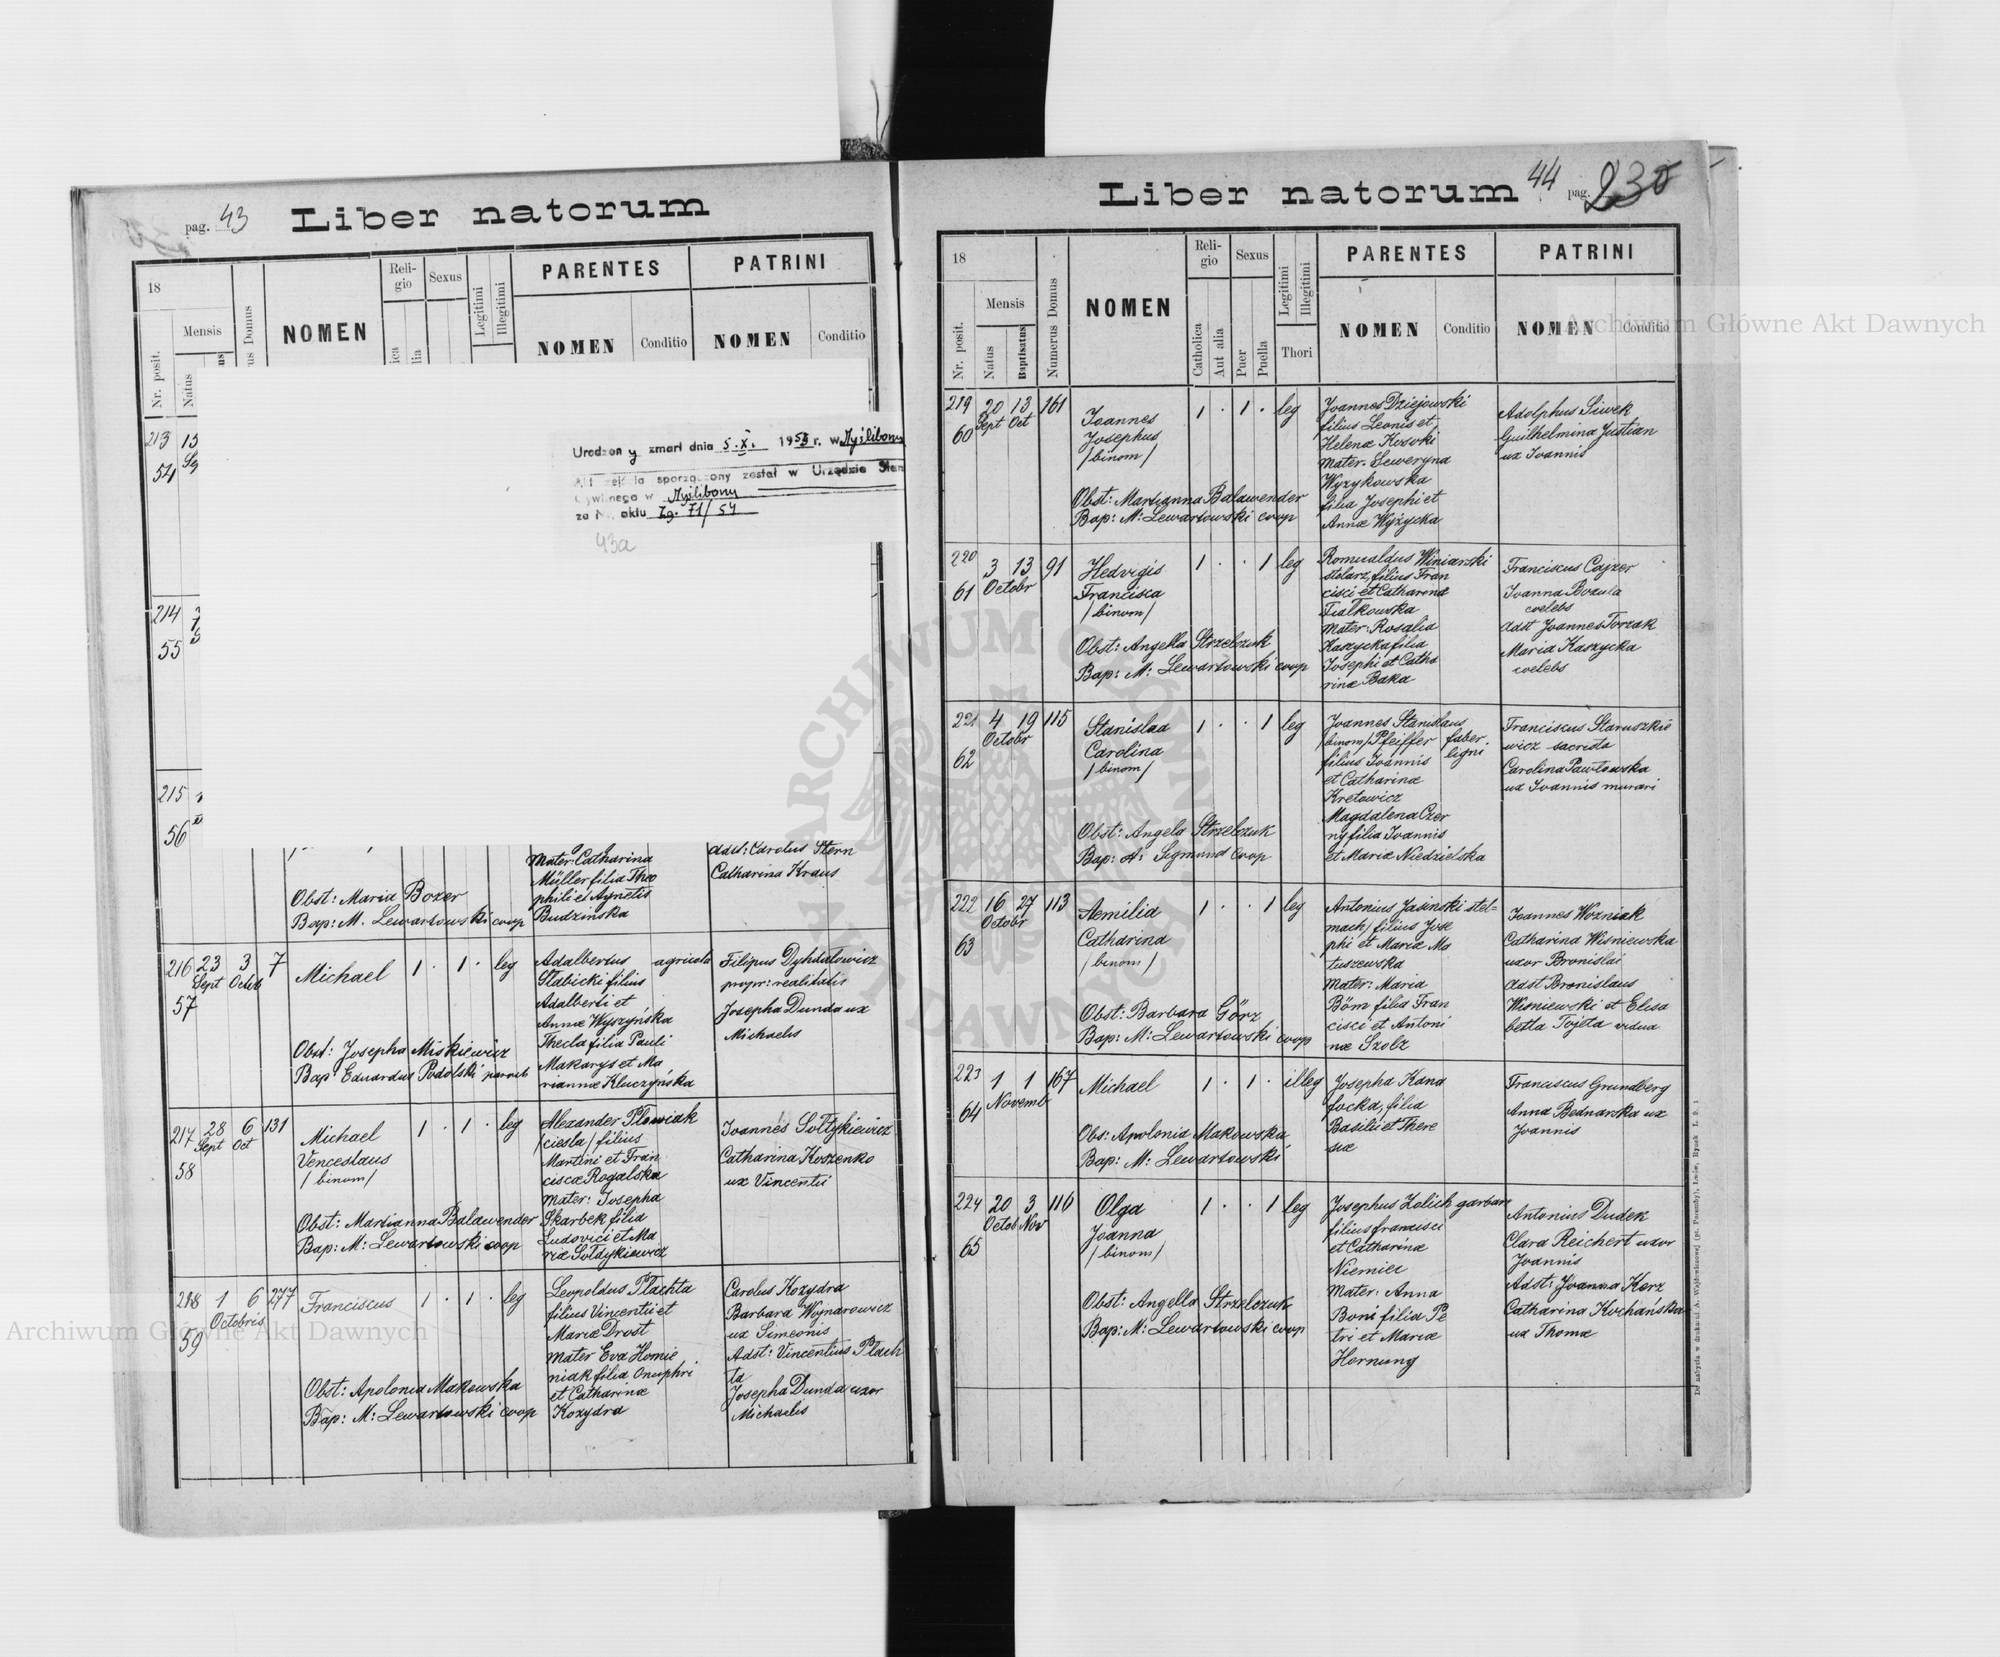 pag. 43 Liber natorum
18
Nr. posit.
Mensis
Natus
NOMEN
Reli-
gio
Sexus
Legitimi
Illegitimi
PARENTES
NOMEN
Conditio
PATRINI
NOMEN
Conditio
Urodzony zmarł dnia 5.X. 1953 r. w
sporządzony został w Urzędzie Stan
w Myślibony
za Nr. aktu Zg. 71/54
43a
213 15
54
214
55
215
56
Mater: Catharina
Müller filia Theo
phili et Agnetis
Budzińska
adst: Carolus Stern
Catharina Kraus
Obst: Maria Bozer
Bap: M. Lewartowski coop
216 23 3 7
Sept Octob
57
Michael
1 . 1 . leg
Adalbertus agricola
Stabicki filius
Adalberti et
Annæ Wyszyńska
Thecla filia Pauli
Makarys et Ma
riannæ Kluczyńska
Filipus Dyhdalowicz
propr: realitatis
Josepha Dunda ux
Michaelis
Obst: Josepha Miskiewicz
Bap: Eduardus Podolski paroch
217 28 6 131
Sept Oct
58
Michael
Venceslaus
/binom/
1 . 1 . leg
Alexander Plowiak
/ciesla/ filius
Martini et Fran
ciscæ Rogalska
Mater: Josepha
Skarbek filia
Ludovici et Ma
riæ Sołdykiewicz
Joannes Sołtykiewicz
Catharina Koszenko
ux Vincentii
Obst: Marianna Balawender
Bap: M: Lewartowski coop
218 1 6 277
Octobris
59
Franciscus
1 . 1 . leg
Leopoldus Plachta
filius Vincentii et
Mariæ Drost
Mater Eva Homie
niak filia Onuphri
et Catharinæ
Kozydra
Carolus Kozydra
Barbara Wojnarowicz
ux Simeonis
Adst: Vincentius Plach
ta
Josepha Dunda uxor
Michaelis
Obst: Apolonia Makowska
Bap: M: Lewartowski coop
Liber natorum 44 pag. 230
18
Nr. posit.
Mensis
Natus
Baptisatus
Numerus Domus
NOMEN
Reli-
gio
Catholica
Aut alia
Sexus
Puer
Puella
Legitimi
Illegitimi
Thori
PARENTES
NOMEN
Conditio
PATRINI
NOMEN
Conditio
219 20 13 161
Sept Oct
60
Joannes
Josephus
/binom/
1 . 1 . leg
Joannes Dziejowski
filius Leonis et
Helenæ Kozorki
Mater. Seweryna
Wyzykowska
filia Josephi et
Annæ Wyżycka
Adolphus Siwek
Guilhelmina Justian
ux Joannis
Obst: Marianna Balawender
Bap: M: Lewartowski coop
220 3 13 91
Octobr
61
Hedvigis
Francisca
/binom/
1 . . 1 leg
Romualdus Winiarski
stolarz, filius Fran
cisci et Catharinæ
Fiałkowska
Mater: Rosalia
Kaszycka filia
Josephi et Catha
rinæ Baka
Franciscus Cajzer
Joanna Bozula
coelebs
adst Joannes Torzak
Maria Kaszycka
coelebs
Obst: Angella Strzelczuk
Bap: M: Lewartowski coop
221 4 19 115
Octobr
62
Stanislaa
Carolina
/binom/
1 . . 1 leg
Joannes Stanislaus
/binom/ Pfeiffer faber
filius Joannis ligni
et Catharinæ
Kretowicz
Magdalena Czer
ny filia Joannis
et Mariæ Niedzielska
Franciscus Staruszkie
wicz sacrista
Carolina Pawłowska
ux Joannis murari
Obst: Angela Strzelczuk
Bap: A: Sigmund Coop
222 16 27 113
Octobr
63
Aemilia
Catharina
/binom/
1 . . 1 leg
Antonius Jasinski stel=
mach/ filius Jose
phi et Mariæ Ma
tuszewska
Mater: Maria
Böm filia Fran
cisci et Antoni
næ Szolz
Joannes Wozniak
Catharina Wisniewska
uxor Bronislai
adst Bronislaus
Wisniewski et Elisa
betha Tojeta vidua
Obst: Barbara Görz
Bap: M: Lewartowski coop
223 1 1 167
Novemb
64
Michael
1 . 1 . illeg
Josepha Kana
focka, filia
Basilii et There
siæ
Franciscus Grundberg
Anna Bednarska ux
Joannis
Obs: Apolonia Makowska
Bap: M: Lewartowski
224 20 3 116
Octob Nov
65
Olga
Joanna
/binom/
1 . . 1 leg
Josephus Zolich garbarz
filius francisci
et Catharinæ
Niemiec
Mater: Anna
Boni filia Pe
tri et Mariæ
Hornung
Antonius Dudek
Clara Reichert uxor
Joannis
Adst: Joanna Kerz
Catharina Kochańska
ux Thomæ
Obst: Angella Strzelczuk
Bap: M: Lewartowski coop
Archiwum Główne Akt Dawnych
Archiwum Główne Akt Dawnych
ARCHIWUM GŁÓWNE AKT DAWNYCH